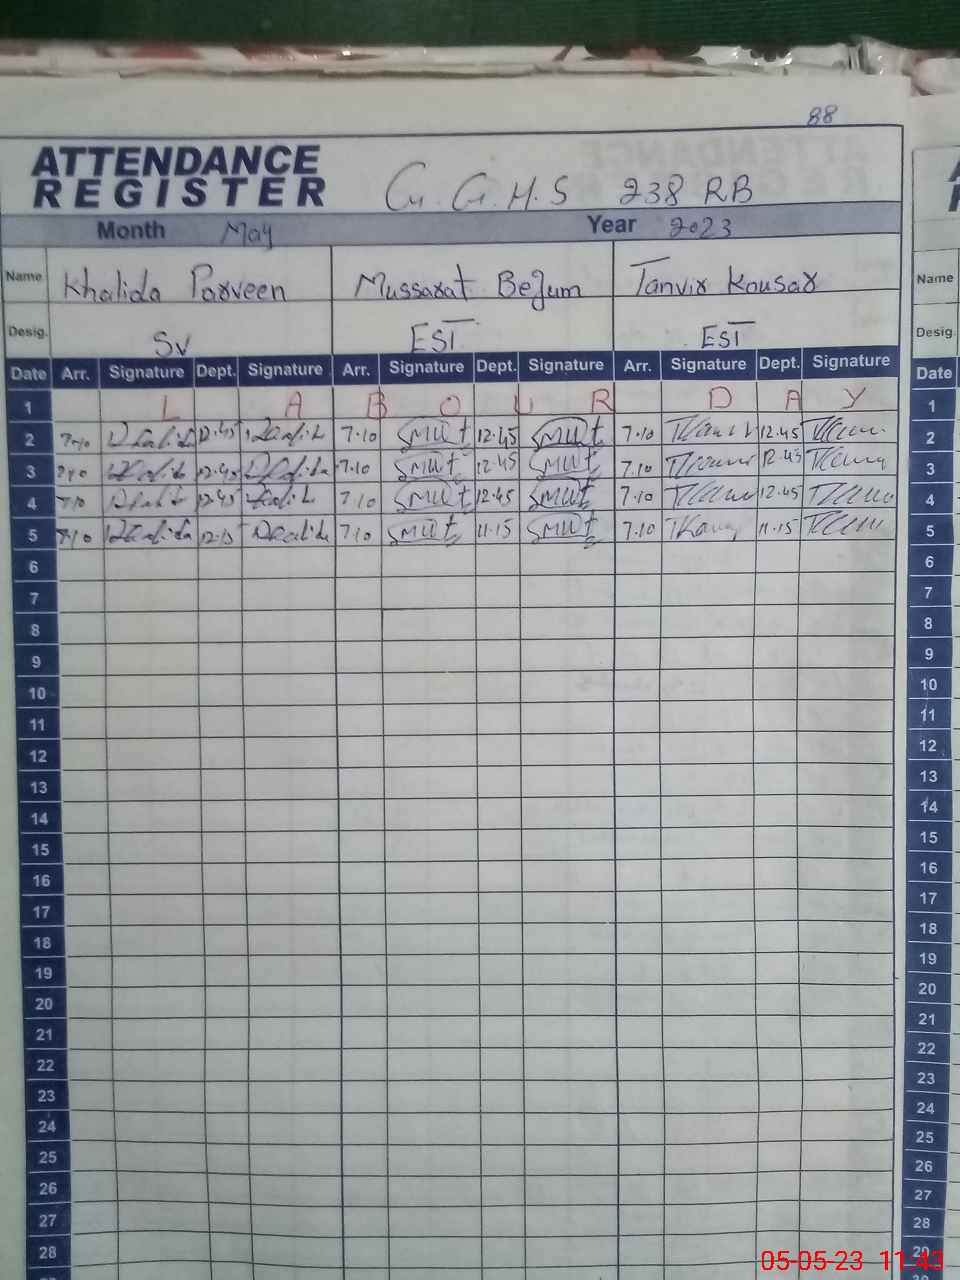 88
ATTENDANCE
REGISTER
G. G. H. S 238 RB
Month May Year 2023
Name Khalida Parveen Mussarat Begum Tanvir Kousar Name
Desig. SV EST EST Desig.
Date Arr. Signature Dept. Signature Arr. Signature Dept. Signature Arr. Signature Dept. Signature Date
1 L A B O U R D A Y 1
2 7.10 12.45 7.10 12.45 7.10 12.45 2
3 7.10 12.45 7.10 12.45 7.10 12.45 3
4 7.10 12.45 7.10 12.45 7.10 12.45 4
5 7.10 12.15 7.10 11.15 7.10 11.15 5
6 6
7 7
8 8
9 9
10 10
11 11
12 12
13 13
14 14
15 15
16 16
17 17
18 18
19 19
20 20
21 21
22 22
23 23
24 24
25 25
26 26
27 27
28 28
29
05-05-23 11:43